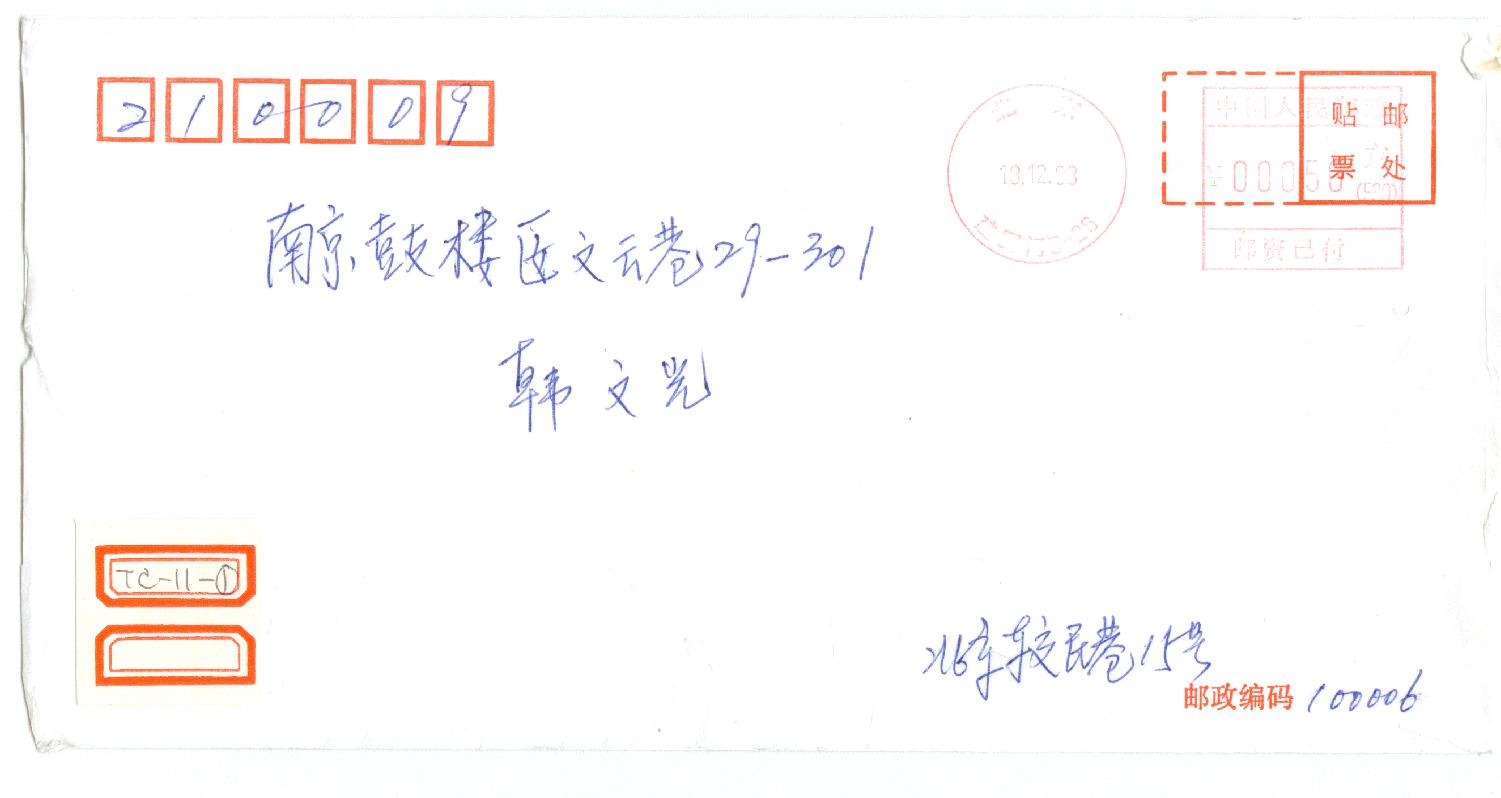 210009
北京
中国人民邮政
贴邮
票处
¥0005
邮资已付
南京鼓楼区文云巷29-301
韩文光
TC-11-①
北京东交民巷15号
邮政编码 100006